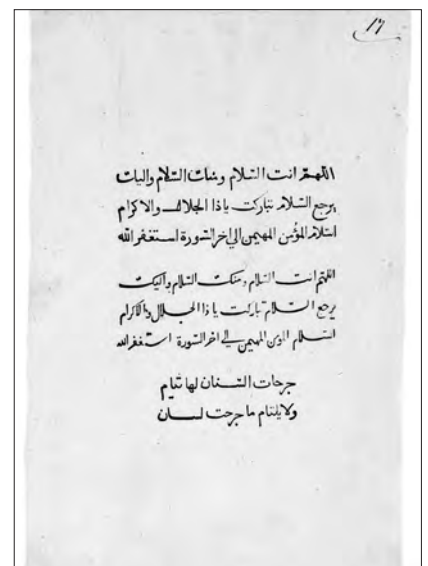 ١٦
اللهم انت السلام ومنك السلام واليك
يرجع السلام تباركت ياذا الجلال والاكرام
السلام المؤمن المهيمن الى اخر السورة استغفر الله
اللهم انت السلام ومنك السلام واليك
يرجع السلام تباركت يا ذا الجلال والاكرام
السلام المومن المهيمن الى اخر السورة استغفر الله
جرحات السنان لها
ولا يلتام ما جرحت لسان